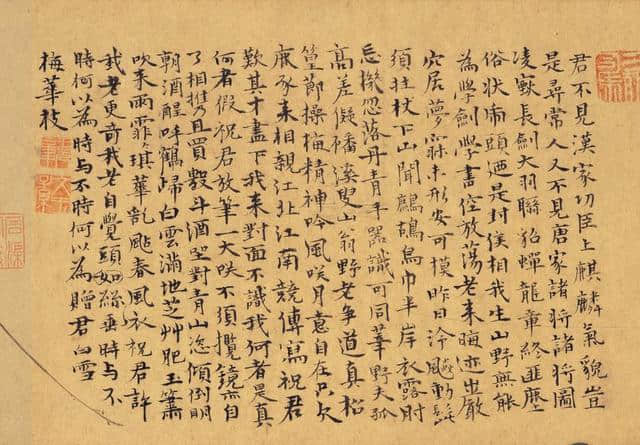 君不見漢家功臣上麒麟氣貌豈
是尋常人又不見唐家諸將諸將圖
凌煙長劍大羽聯貂蟬龍章終匪塵
俗狀虎頭迺是封侯相我生山野無能
為學劍學書空放蕩老來晦迹出巖
穴居夢寐未形安可摸昨日冷飈動髭
須拄杖下山聞鷓鴣烏巾半岸衣露肘
忘機忽落丹青手器識可同莘野夫孤
高差儗磻溪叟山翁野老爭道真松
篁節操梅精神吟風笑月意自在只欠
鹿豕來相親江北江南競傳寫祝君
歎其才盡下我來對面不識我何者是真
何者假祝君放筆一大咲不須攬鏡亦自
了相攜且買數斗酒坐對青山恣傾倒明
朝酒醒呼鶴歸白雲滿地芝艸肥玉簫
吹來雨霏霏琪華亂颭春風衣祝君許
我老更奇我老自覺頭如絲垂時与不
時何以為時与不時何以為贈君白雪
梅華枝